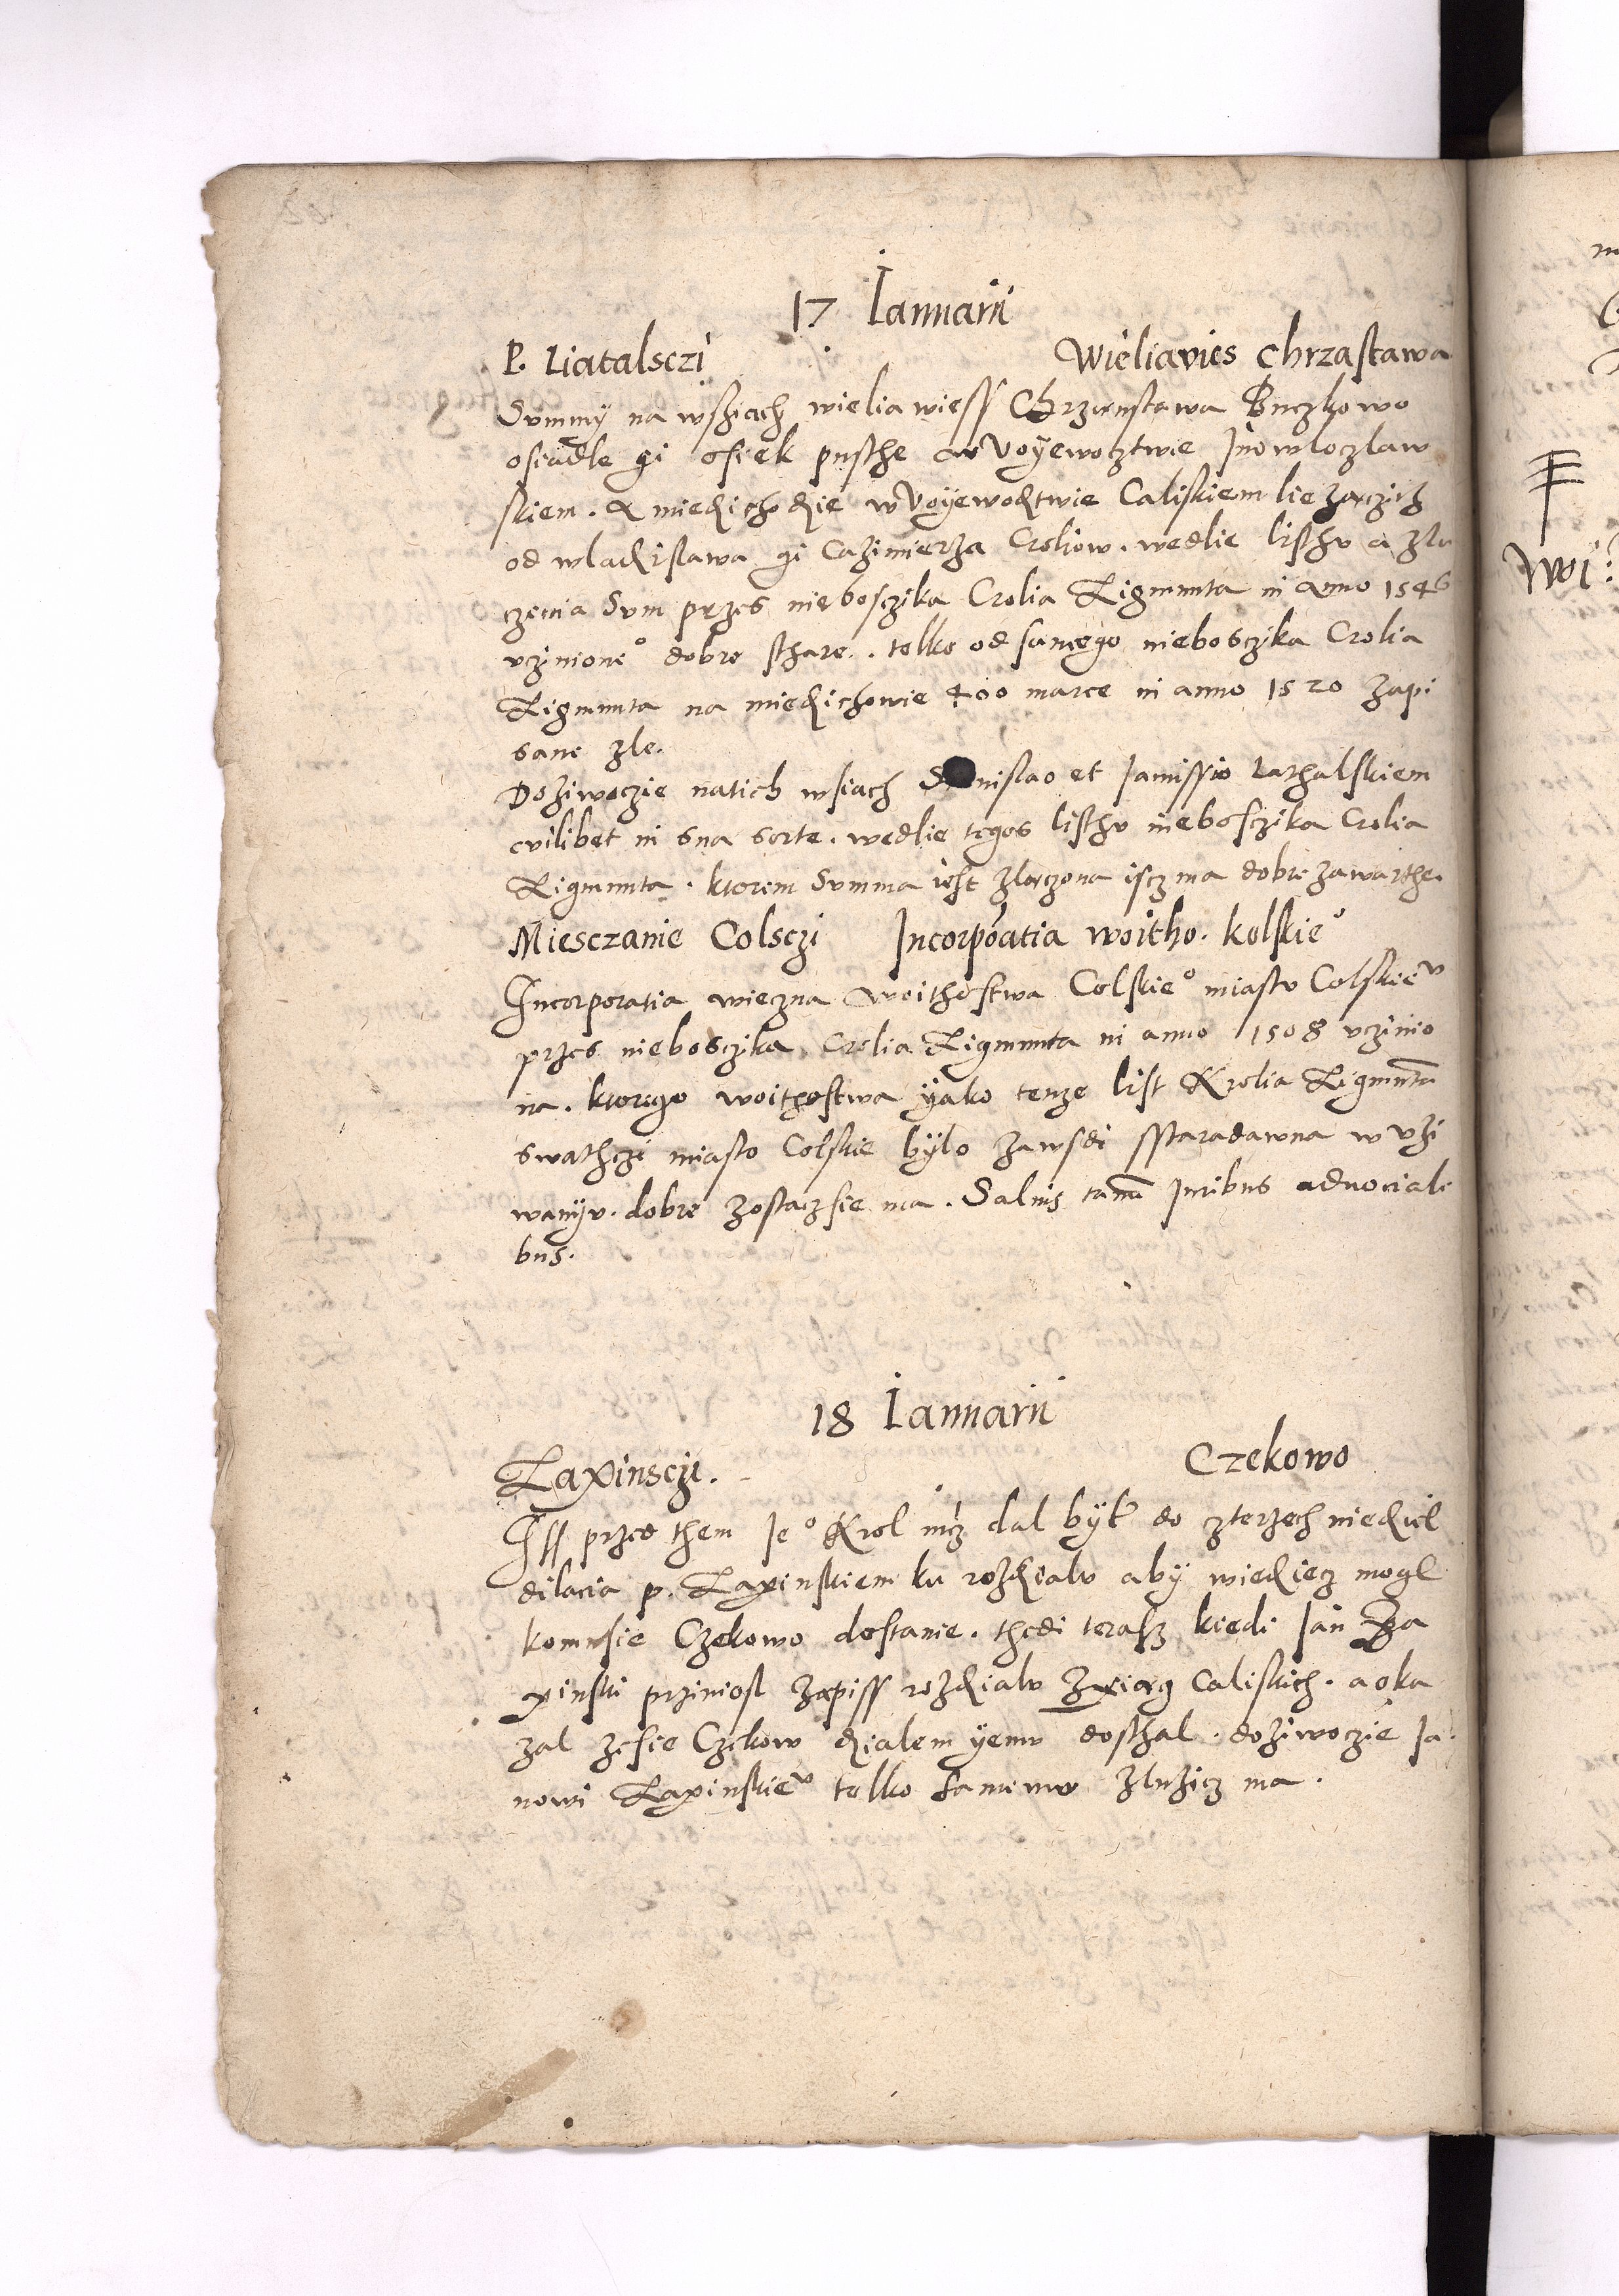 17 Ianuarii
P. Liatalsczi Wieliavies Chrzastawa
Summy na wsziach wielia wiess Chrzanstawa Buczkowo
osiadle gi osiek pusthe w Voyewocztwie Inowloczlaw
skiem. A miedzichodzie w Voyewodztwie Caliskiem liezaczich
od wladzislawa gi Cazimierza Croliow. wedlie listhu a zlu
czenia Sum przes nieboszczika Crolia Zigmunta in anno 1546
uczinione° dobre sthare. telko od samego niebosczika Crolia
Zigmunta na miedzichowie 400 marce in anno 1520 zapi
sane zle.
Dożiwoczie natich wsiach S nislao et Ianussio Lathalskiem
cuilibet in sua sorte. wedlie tegos listhu niebosczika Crolia
Zigmunta. ktorem Summa iest zlaczona iscz ma dobre zawarthe.
Miesczanie Colsczi Incorporatia woitho. kolskie°
Incorporatia wieczna woithostwa Colskie° miastu Colskieu
przes niebosczika Crolia Zigmunta in anno 1508 uczinio
na. ktorego woithostwa yako tenze list Krolia Zigmunta
swathczi miasto Colskie bylo zawsdi sstaradawna w uzi
wanyu. dobre zostaczsie ma. Salvis tamen Iuribus advociali
bus.
18 Ianuarii
Laxinsczi. Czekowo
Iss przed them Ie° Krol mcz dal byl do czterzech niedziel
dilacia p. Laxinskiem ku rozdzialu aby wiedziecz mogl
komusie Czekowo dostanie. thedi terasz kiedi Ian La
xinski prziniosl zapiss rozdzialu zxiag Caliskich. a oka
zal zesie Czekow dzialem yemu dosthal. dożiwoczie Ia
nowi Laxinskieu telko samemu zluzicz ma.